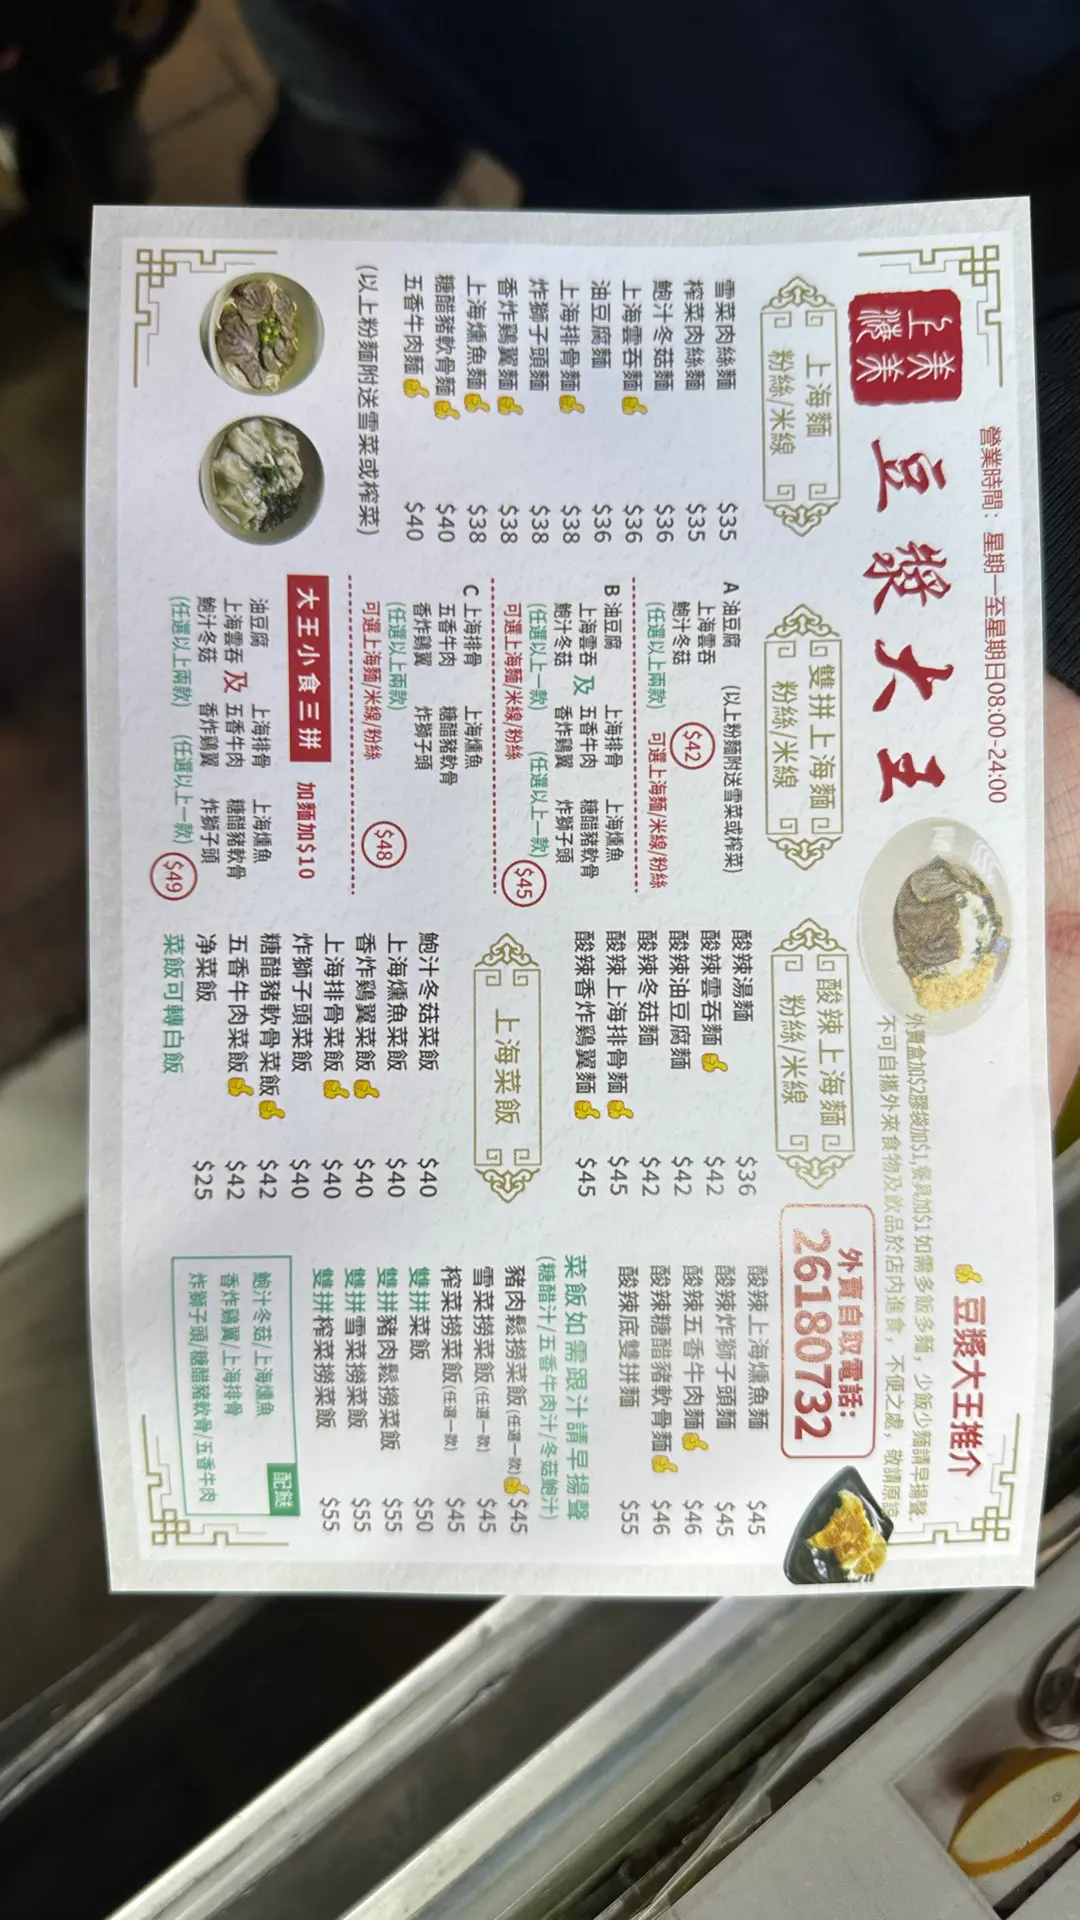 營業時間：星期一至星期日08:00-24:00
上海
美美
豆漿大王
豆漿大王推介
外賣盒加$2膠袋加$1,餐具加$1 如需多飯多麵，少飯少麵請早揚聲,
不可自攜外來食物及飲品於店內進食，不便之處，敬請原諒
外賣自取電話:
26180732
上海麵
粉絲/米線
雪菜肉絲麵 $35
榨菜肉絲麵 $35
鮑汁冬菇麵 $36
上海雲吞麵 $36
油豆腐麵 $36
上海排骨麵 $38
炸獅子頭麵 $38
香炸鷄翼麵 $38
上海燻魚麵 $38
糖醋豬軟骨麵 $40
五香牛肉麵 $40
(以上粉麵附送雪菜或榨菜)
雙拼上海麵
粉絲/米線
A 油豆腐 (以上粉麵附送雪菜或榨菜)
上海雲吞
鮑汁冬菇 $42
(任選以上兩款) 可選上海麵/米線/粉絲
B 油豆腐 上海排骨 上海燻魚
上海雲吞 及 五香牛肉 糖醋豬軟骨
鮑汁冬菇 香炸鷄翼 炸獅子頭
(任選以上一款) (任選以上一款)
可選上海麵/米線/粉絲 $45
C 上海排骨 上海燻魚
五香牛肉 糖醋豬軟骨
香炸鷄翼 炸獅子頭
(任選以上兩款)
可選上海麵/米線/粉絲 $48
大王小食三拼 加麵加$10
油豆腐 上海排骨 上海燻魚
上海雲吞 及 五香牛肉 糖醋豬軟骨
鮑汁冬菇 香炸鷄翼 炸獅子頭
(任選以上兩款) (任選以上一款) $49
酸辣上海麵
粉絲/米線
酸辣湯麵 $36
酸辣雲吞麵 $42
酸辣油豆腐麵 $42
酸辣冬菇麵 $42
酸辣上海排骨麵 $45
酸辣香炸鷄翼麵 $45
酸辣上海燻魚麵 $45
酸辣炸獅子頭麵 $45
酸辣五香牛肉麵 $46
酸辣糖醋豬軟骨麵 $46
酸辣底雙拼麵 $55
上海菜飯
鮑汁冬菇菜飯 $40
上海燻魚菜飯 $40
香炸鷄翼菜飯 $40
上海排骨菜飯 $40
炸獅子頭菜飯 $40
糖醋豬軟骨菜飯 $42
五香牛肉菜飯 $42
净菜飯 $25
菜飯可轉白飯
菜飯如需跟汁請早揚聲
(糖醋汁/五香牛肉汁/冬菇鮑汁)
豬肉鬆撈菜飯(任選一款) $45
雪菜撈菜飯(任選一款) $45
榨菜撈菜飯(任選一款) $45
雙拼菜飯 $50
雙拼豬肉鬆撈菜飯 $55
雙拼雪菜撈菜飯 $55
雙拼榨菜撈菜飯 $55
配餸
鮑汁冬菇/上海燻魚
香炸鷄翼/上海排骨
炸獅子頭/糖醋豬軟骨/五香牛肉